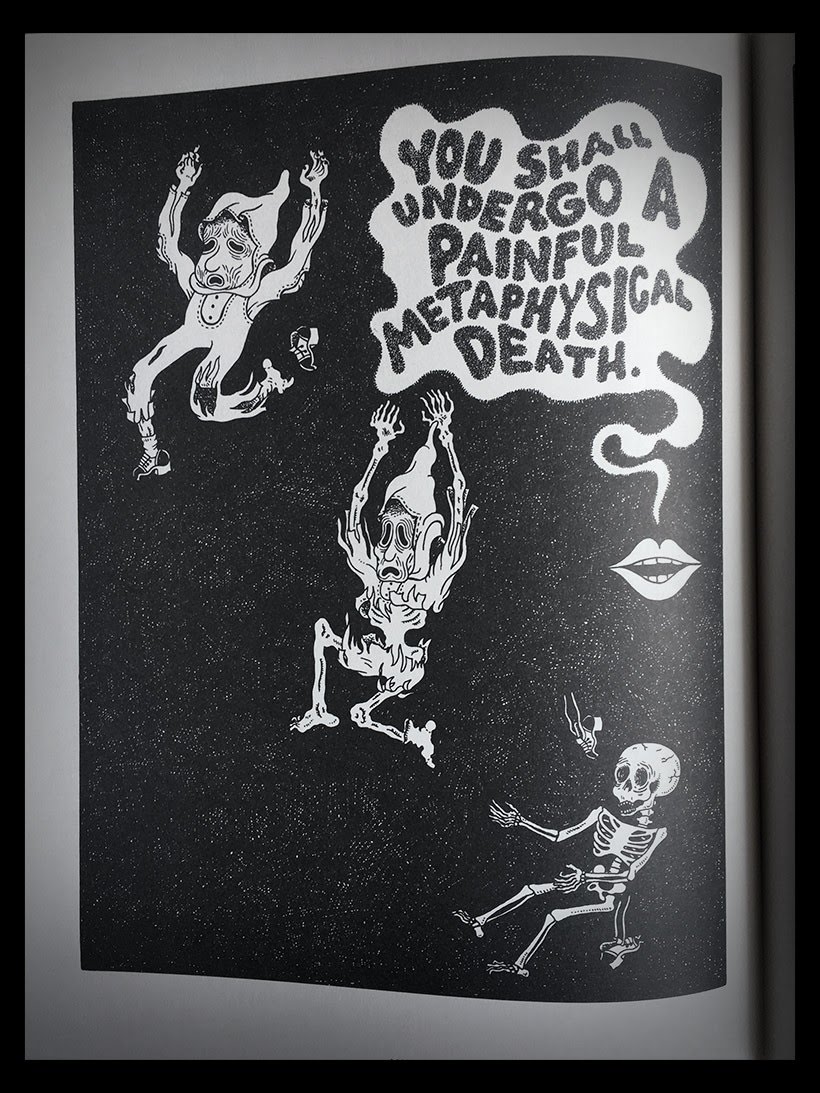 YOU SHALL
UNDERGO A
PAINFUL
METAPHYSICAL
DEATH.